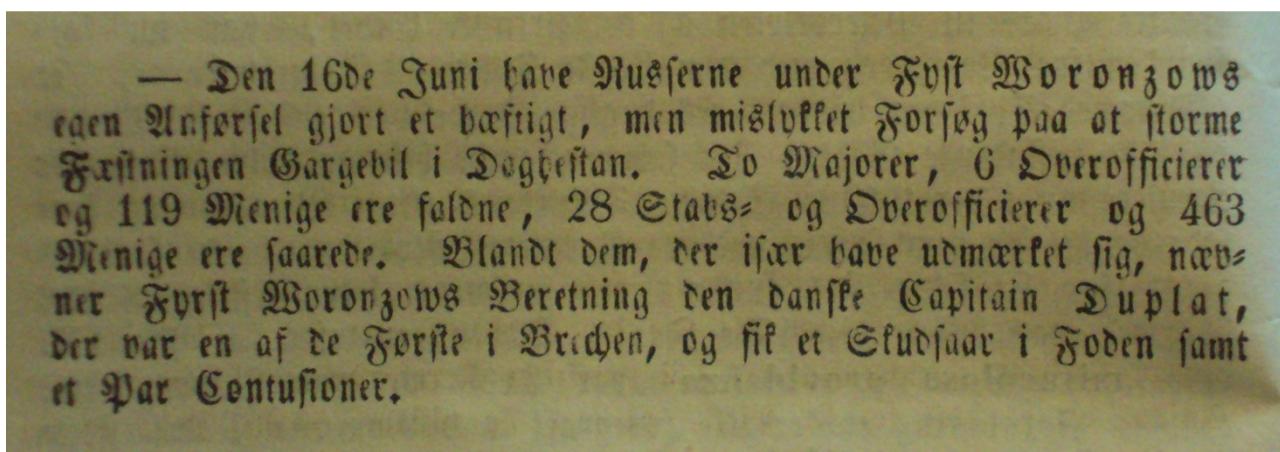 — Den 16de Juni have Russerne under Fyst Woronzows
egen Anførsel gjort et hæftigt, men mislykket Forsøg paa at storme
Fæstningen Gargebil i Daghestan. To Majorer, 6 Overofficierer
og 119 Menige ere faldne, 28 Stabs- og Overofficierer og 463
Menige ere saarede. Blandt dem, der især have udmærket sig, næv-
ner Fyrst Woronzows Beretning den danske Capitain Duplat,
der var en af de Første i Brechen, og fik et Skudsaar i Foden samt
et Par Contusioner.